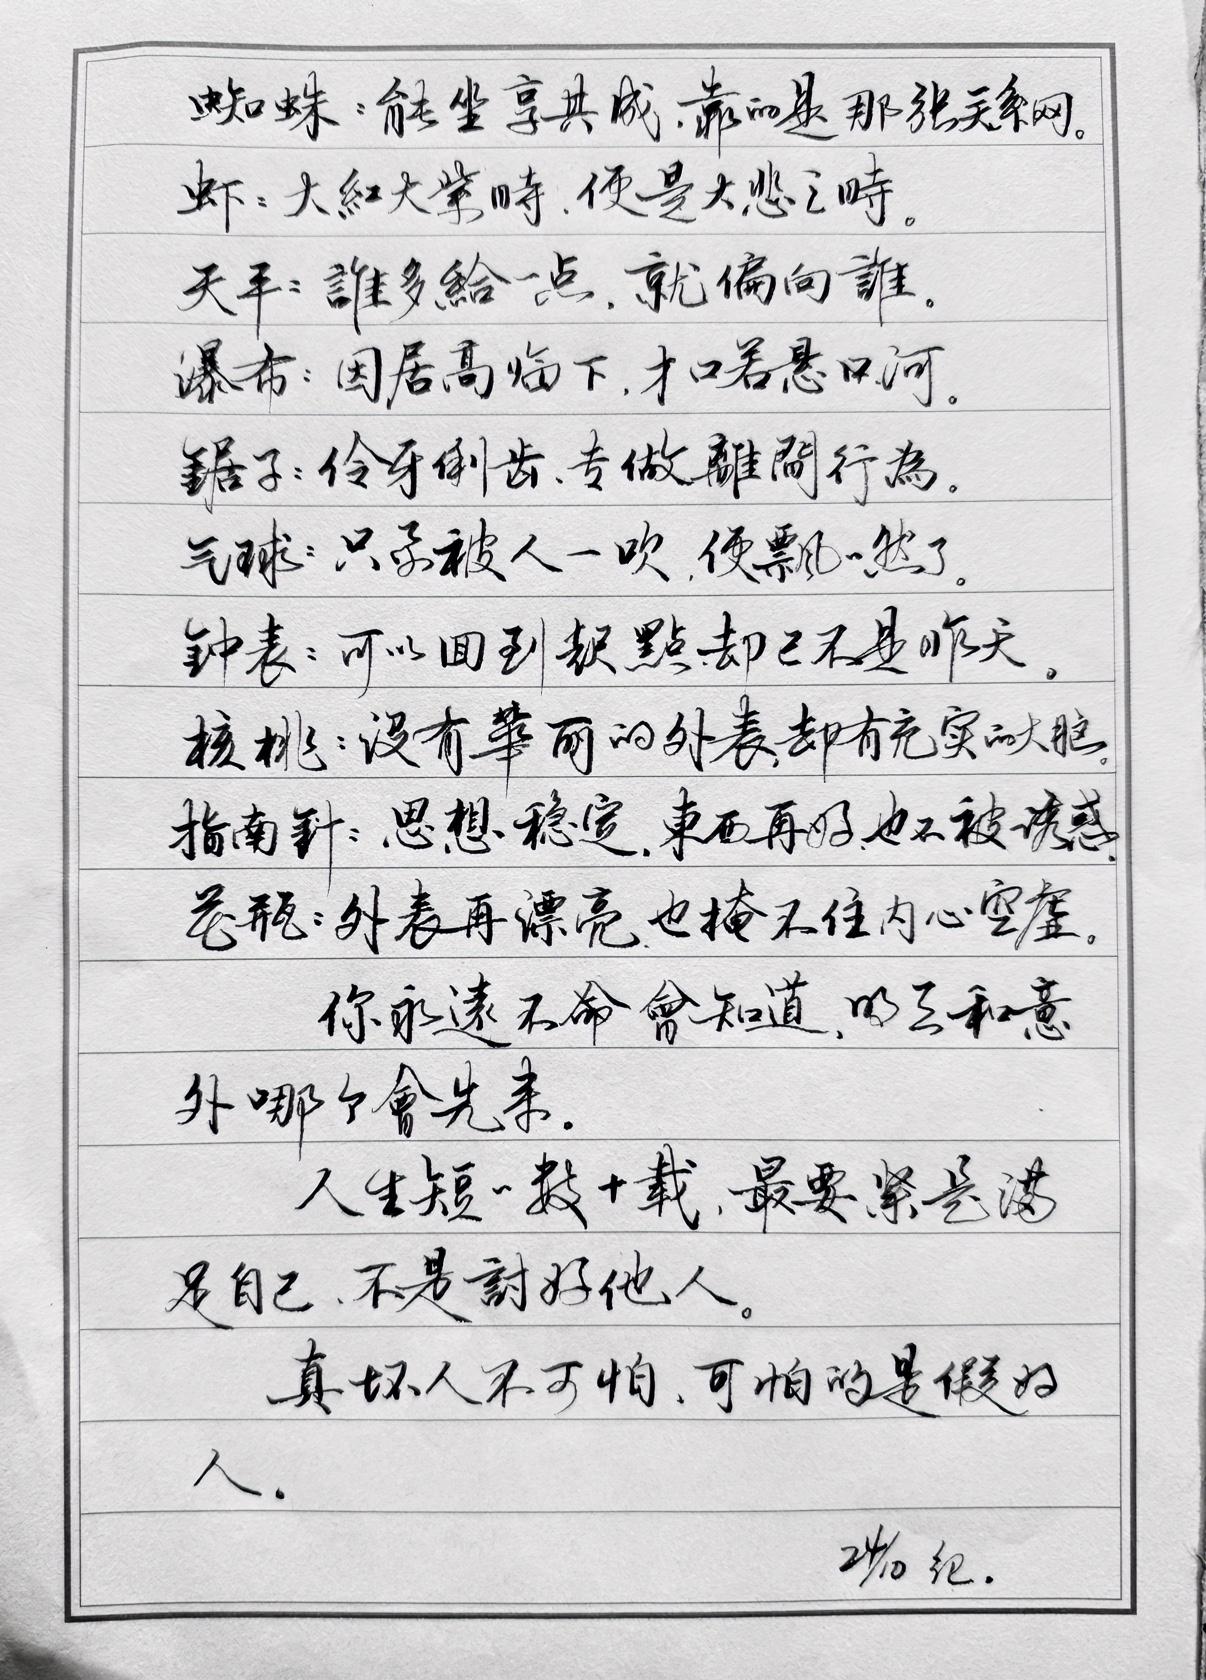 蜘蛛：能坐享其成，靠的是那张关系网。
虾：大紅大紫時，便是大悲之時。
天平：誰多給一点，就偏向誰。
瀑布：因居高临下，才口若悬口河。
鋸子：伶牙俐齿，专做離間行為。
气球：只要被人一吹，便飄飄然了。
钟表：可以回到起點，却已不是昨天。
核桃：没有華丽的外表，却有充实的大脑。
指南針：思想稳定，東西再好，也不被诱惑。
花瓶：外表再漂亮，也掩不住内心空虚。
你永遠不命會知道，明天和意
外哪个會先来。
人生短短數十载，最要紧是满
足自己，不是討好他人。
真坏人不可怕，可怕的是假好
人。
24/10 纪.